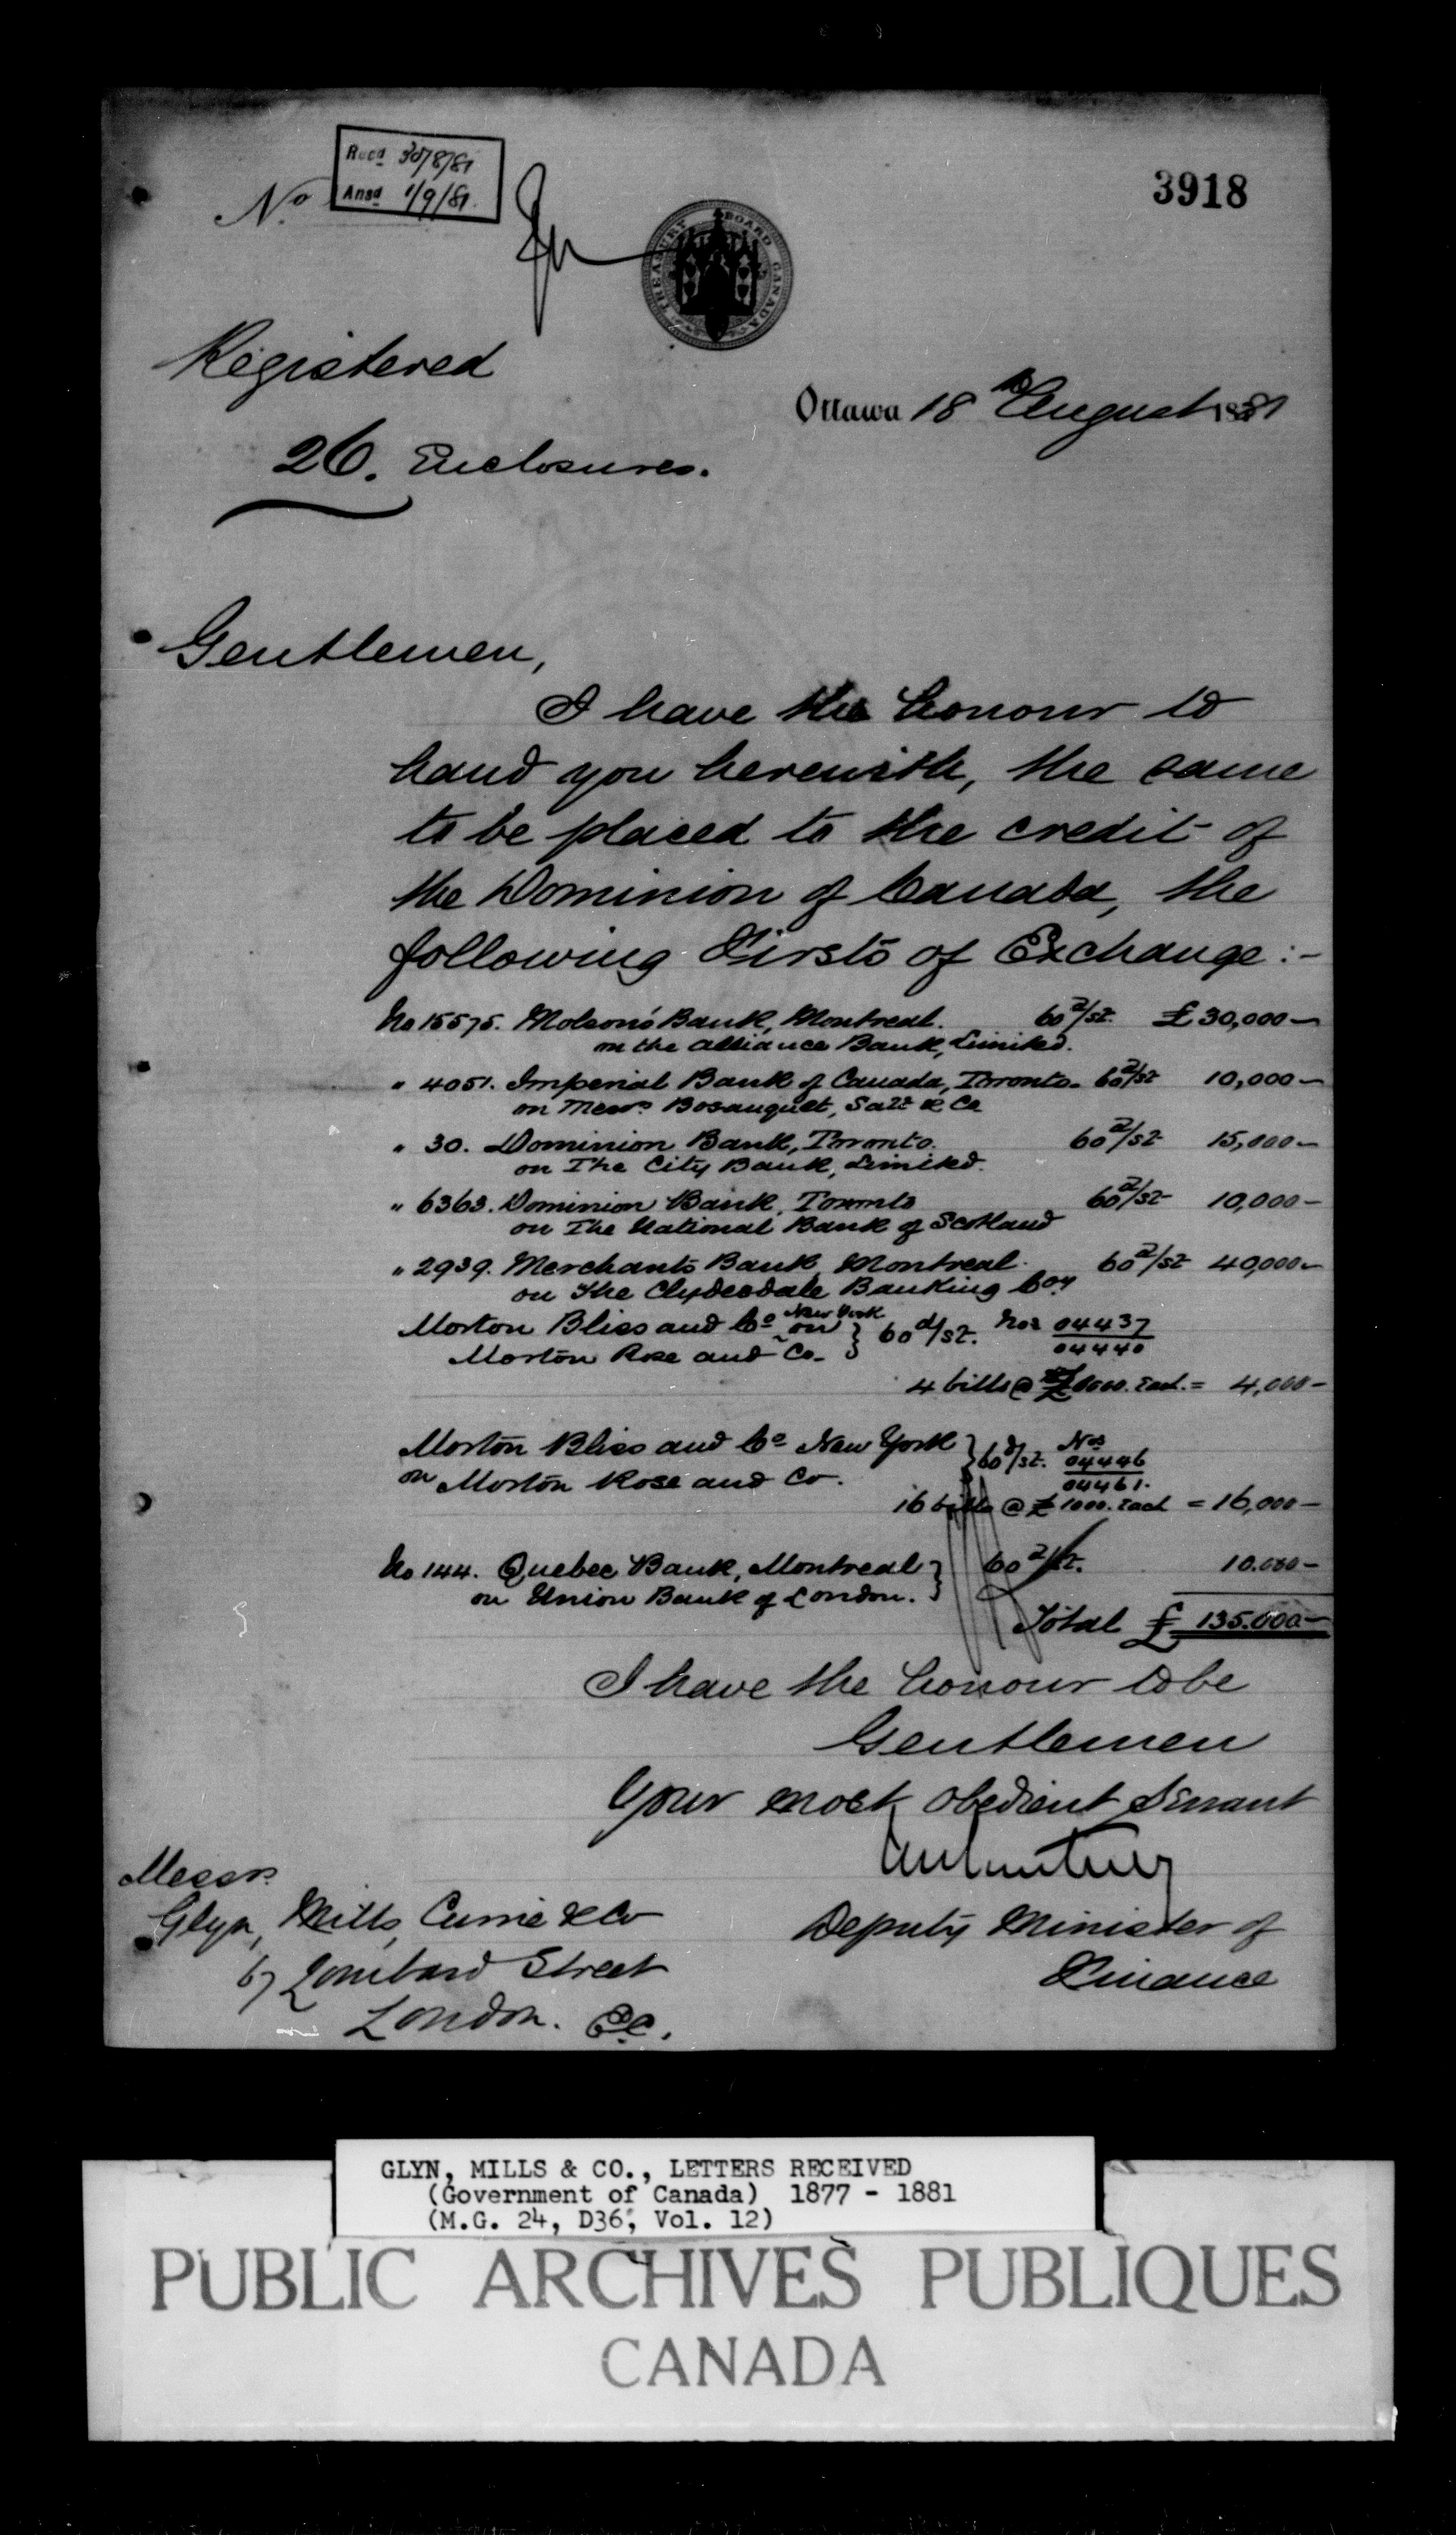 3918
Recd 30/8/81
Ansd 1/9/81
No
TREASURY BOARD CANADA
Registered
Ottawa 18th August 1881
26. Enclosures.
Gentlemen,
I have the honour to
hand you herewith, the same
to be placed to the credit of
the Dominion of Canada, the
following Firsts of Exchange :-
No 15575. Molson's Bank, Montreal. 60 d/st. £ 30,000 -
on the Alliance Bank, Limited.
" 4051. Imperial Bank of Canada, Toronto. 60 d/st 10,000 -
on Messrs Bosanquet, Salt & Co
" 30. Dominion Bank, Toronto. 60 d/st 15,000 -
on The City Bank, Limited.
" 6363. Dominion Bank, Toronto 60 d/st 10,000 -
on The National Bank of Scotland
" 2939. Merchants Bank, Montreal. 60 d/st 40,000 -
on The Clydesdale Banking Coy
Morton Bliss and Co New York on } 60 d/st. Nos 04437
Morton Rose and Co. 04440
4 bills @ £1000. Each. = 4,000 -
Morton Bliss and Co New York } 60 d/st. Nos 04446
on Morton Rose and Co. 04461.
16 bills @ £1000. Each = 16,000 -
No 144. Quebec Bank, Montreal } 60 d/st. 10.000 -
on Union Bank of London.
Total £ 135.000 -
I have the honour to be
Gentlemen
Your most obedient Servant
Deputy Minister of
Finance
Messrs
Glyn, Mills, Currie & Co
67 Lombard Street
London. E.C.
GLYN, MILLS & CO., LETTERS RECEIVED
(Government of Canada) 1877 - 1881
(M.G. 24, D36, Vol. 12)
PUBLIC ARCHIVES PUBLIQUES
CANADA